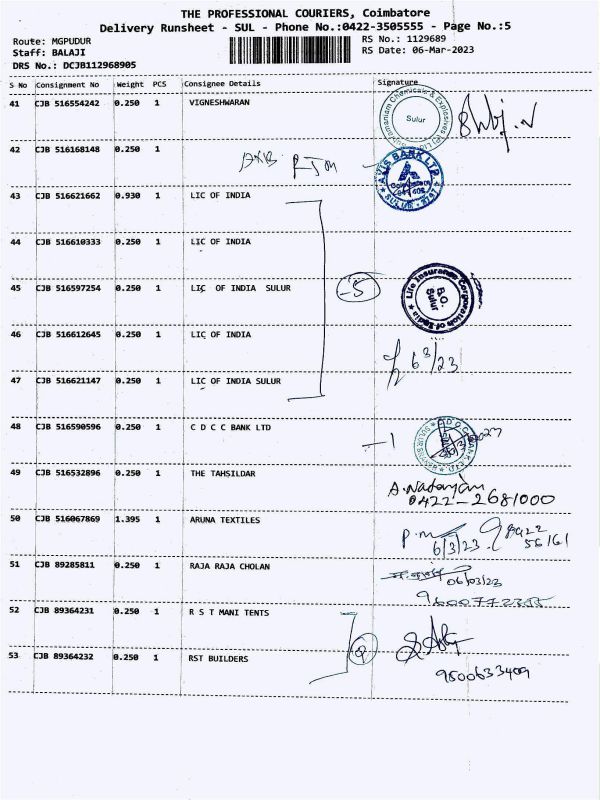 THE PROFESSIONAL COURIERS, Coimbatore
Delivery Runsheet - SUL - Phone No.:0422-3505555 - Page No.:5
Route: MGPUDUR RS No.: 1129689
Staff: BALAJI RS Date: 06-Mar-2023
DRS No.: DCJB112968905
S No Consignment No Weight PCS Consignee Details Signature
41 CJB 516554242 0.250 1 VIGNESHWARAN
Sulur
42 CJB 516168148 0.250 1
AXIS BANK LTD
Coimbatore
SULUR
43 CJB 516621662 0.930 1 LIC OF INDIA
44 CJB 516610333 0.250 1 LIC OF INDIA
45 CJB 516597254 0.250 1 LIC OF INDIA SULUR
5
Life Insurance Corporation of India
B.O.
Sulur
46 CJB 516612645 0.250 1 LIC OF INDIA
6/3/23
47 CJB 516621147 0.250 1 LIC OF INDIA SULUR
48 CJB 516590596 0.250 1 C D C C BANK LTD
-1
49 CJB 516532896 0.250 1 THE TAHSILDAR
A. Natarajan
0422-2681000
50 CJB 516067869 1.395 1 ARUNA TEXTILES
6/3/23
51 CJB 89285811 0.250 1 RAJA RAJA CHOLAN
06/03/23
52 CJB 89364231 0.250 1 R S T MANI TENTS
2
53 CJB 89364232 0.250 1 RST BUILDERS
9500633409